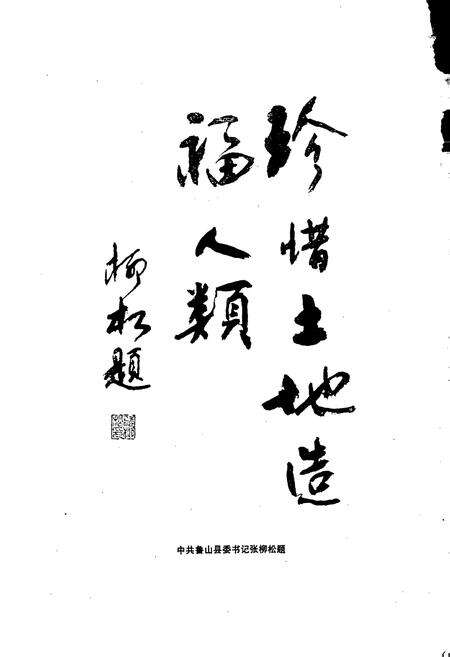 珍惜土地造
福人類
柳松题
中共鲁山县委书记张柳松题